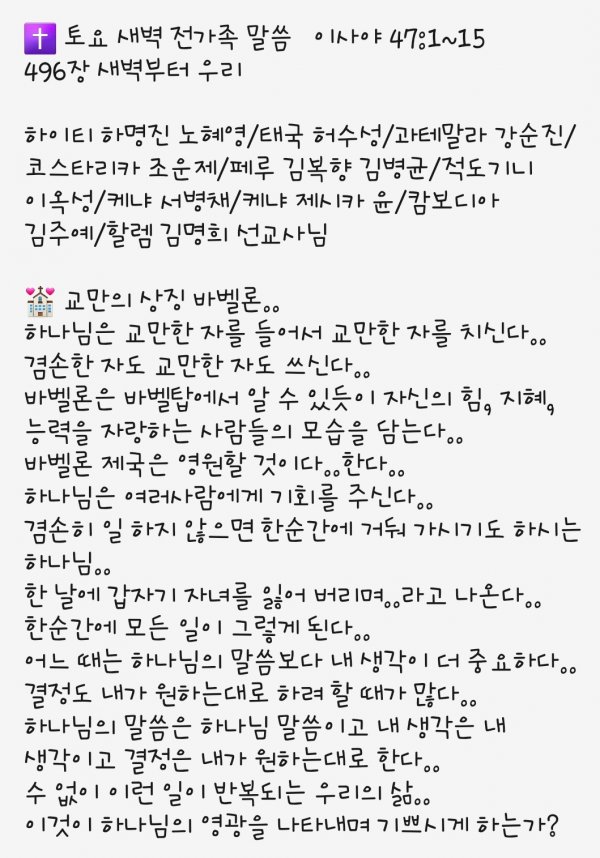 ✝️ 토요 새벽 전가족 말씀   이사야 47:1~15
496장 새벽부터 우리
하이티 하명진 노혜영/태국 허수성/과테말라 강순진/
코스타리카 조운제/페루 김복향 김병균/적도기니
이옥성/케냐 서병채/케냐 제시카 윤/캄보디아
김주예/할렘 김명희 선교사님
💒 교만의 상징 바벨론..
하나님은 교만한 자를 들어서 교만한 자를 치신다..
겸손한 자도 교만한 자도 쓰신다..
바벨론은 바벨탑에서 알 수 있듯이 자신의 힘, 지혜,
능력을 자랑하는 사람들의 모습을 담는다..
바벨론 제국은 영원할 것이다..한다..
하나님은 여러사람에게 기회를 주신다..
겸손히 일 하지 않으면 한순간에 거둬 가시기도 하시는
하나님..
한 날에 갑자기 자녀를 잃어 버리며..라고 나온다..
한순간에 모든 일이 그렇게 된다..
어느 때는 하나님의 말씀보다 내 생각이 더 중요하다..
결정도 내가 원하는대로 하려 할 때가 많다..
하나님의 말씀은 하나님 말씀이고 내 생각은 내
생각이고 결정은 내가 원하는대로 한다..
수 없이 이런 일이 반복되는 우리의 삶..
이것이 하나님의 영광을 나타내며 기쁘시게 하는가?